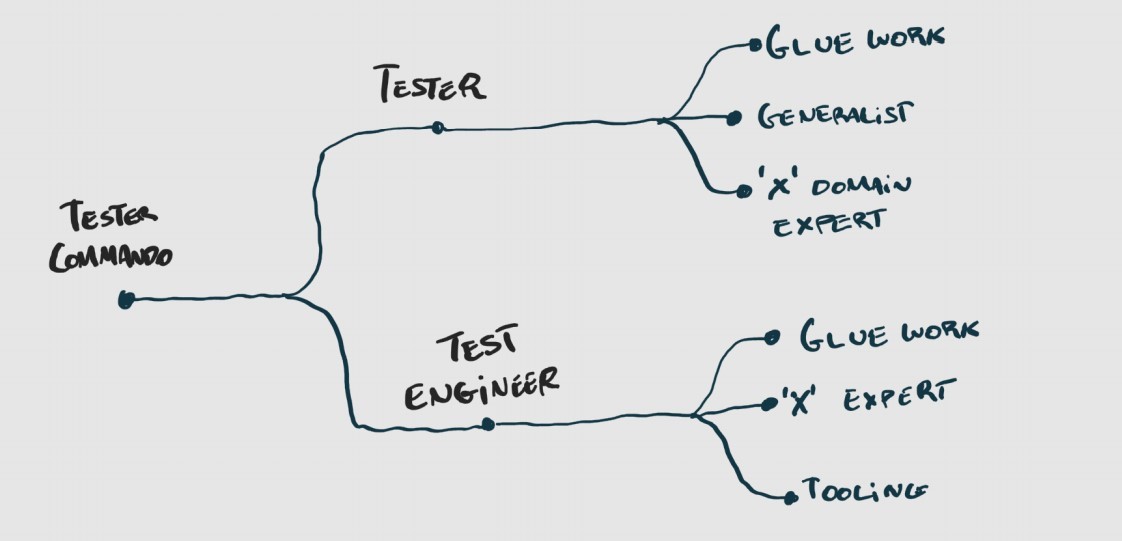 TESTER
COMMANDO
TESTER
GLUE WORK
GENERALiST
'X' DOMAiN
EXPERT
TEST
ENGiNEER
GLUE WORK
'X' EXPERT
TOOLiNG